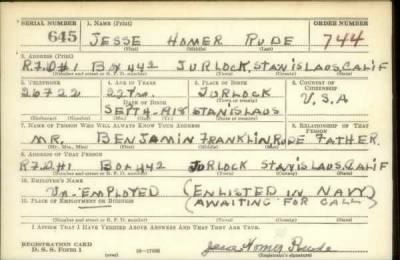 SERIAL NUMBER 1. NAME (Print) ORDER NUMBER
645 JESSE HOMER RUDE 744
(First) (Middle) (Last)
2. ADDRESS (Print)
R.F.D#1 Box 442 TURLOCK, STANISLAUS, CALIF
(Number and street or R. F. D. number) (Town) (County) (State)
3. TELEPHONE 4. AGE IN YEARS 5. PLACE OF BIRTH 6. COUNTRY OF CITIZENSHIP
26722 22 TURLOCK
DATE OF BIRTH (Town or county) U.S.A
SEPT 4 1918 STANISLAUS
(Exchange) (Number) (Mo.) (Day) (Yr.) (State or country)
7. NAME OF PERSON WHO WILL ALWAYS KNOW YOUR ADDRESS 8. RELATIONSHIP OF THAT PERSON
MR. BENJAMIN FRANKLIN RUDE FATHER
(Mr., Mrs., Miss) (First) (Middle) (Last)
9. ADDRESS OF THAT PERSON
R.F.D#1 Box 442 TURLOCK STANISLAUS, CALIF
(Number and street or R. F. D. number) (Town) (County) (State)
10. EMPLOYER'S NAME
UN-EMPLOYED (ENLISTED IN NAVY)
11. PLACE OF EMPLOYMENT OR BUSINESS AWAITING FOR CALL)
(Number and street or R. F. D. number) (Town) (County) (State)
I AFFIRM THAT I HAVE VERIFIED ABOVE ANSWERS AND THAT THEY ARE TRUE.
REGISTRATION CARD
D. S. S. FORM 1 Jesse Homer Rude
(Registrant's signature)